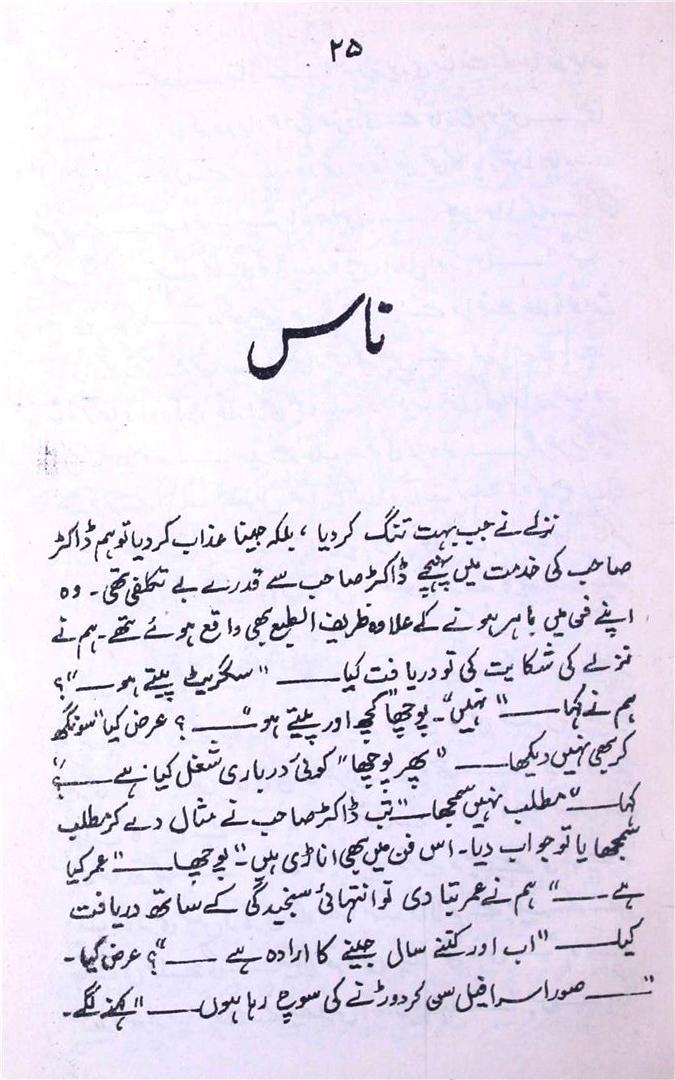 ۲۵
ناس
نزلے نے جب بہت تنگ کر دیا ، بلکہ جینا عذاب کر دیا تو ہم ڈاکٹر
صاحب کی خدمت میں پہنچے ڈاکٹر صاحب سے قدرے بے تکلفی تھی ۔ وہ
اپنے فن میں ماہر ہونے کے علاوہ ظریف الطبع بھی واقع ہوئے تھے ۔ ہم نے
نزلے کی شکایت کی تو دریافت کیا ــــ "سگریٹ پیتے ہو ــــ"؟
ہم نے کہا ــــ "نہیں" ۔ پوچھا "کچھ اور پیتے ہو" ــــ ؟ عرض کیا "سونگھ
کر بھی نہیں دیکھا ــــ " پھر پوچھا "کوئی درباری شغل کیا ہے ــــ"؟
کہا ــــ "مطلب نہیں سمجھا ــــ" تب ڈاکٹر صاحب نے مثال دے کر مطلب
سمجھایا تو جواب دیا ۔ اس فن میں بھی اناڑی ہیں" پوچھا ــــ "عمر کیا
ہے ــــ" ہم نے عمر بتا دی تو انتہائی سنجیدگی کے ساتھ دریافت
کیا ــــ "اب اور کتنے سال جینے کا ارادہ ہے ــــ"؟ عرض کیا ۔
"ــــ صور اسرافیل سن کر دوڑنے کی سوچ رہا ہوں ــــ" کہنے لگے ۔